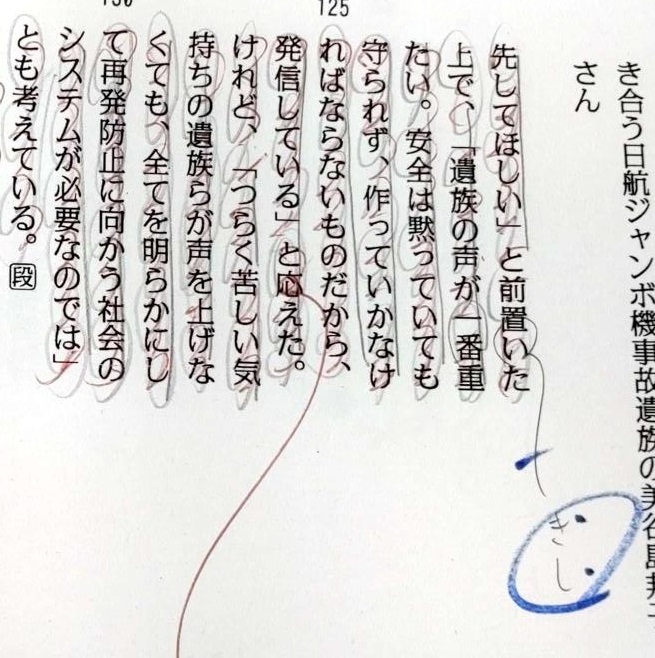 き合う日航ジャンボ機事故遺族の美谷島邦子
さん
125
先してほしい」と前置いた
上で、「遺族の声が一番重
たい。安全は黙っていても
守られず、作っていかなけ
ればならないものだから、
発信している」と応えた。
けれど、「つらく苦しい気
持ちの遺族らが声を上げな
くても、全てを明らかにし
て再発防止に向かう社会の
システムが必要なのでは」
とも考えている。段
きし
130